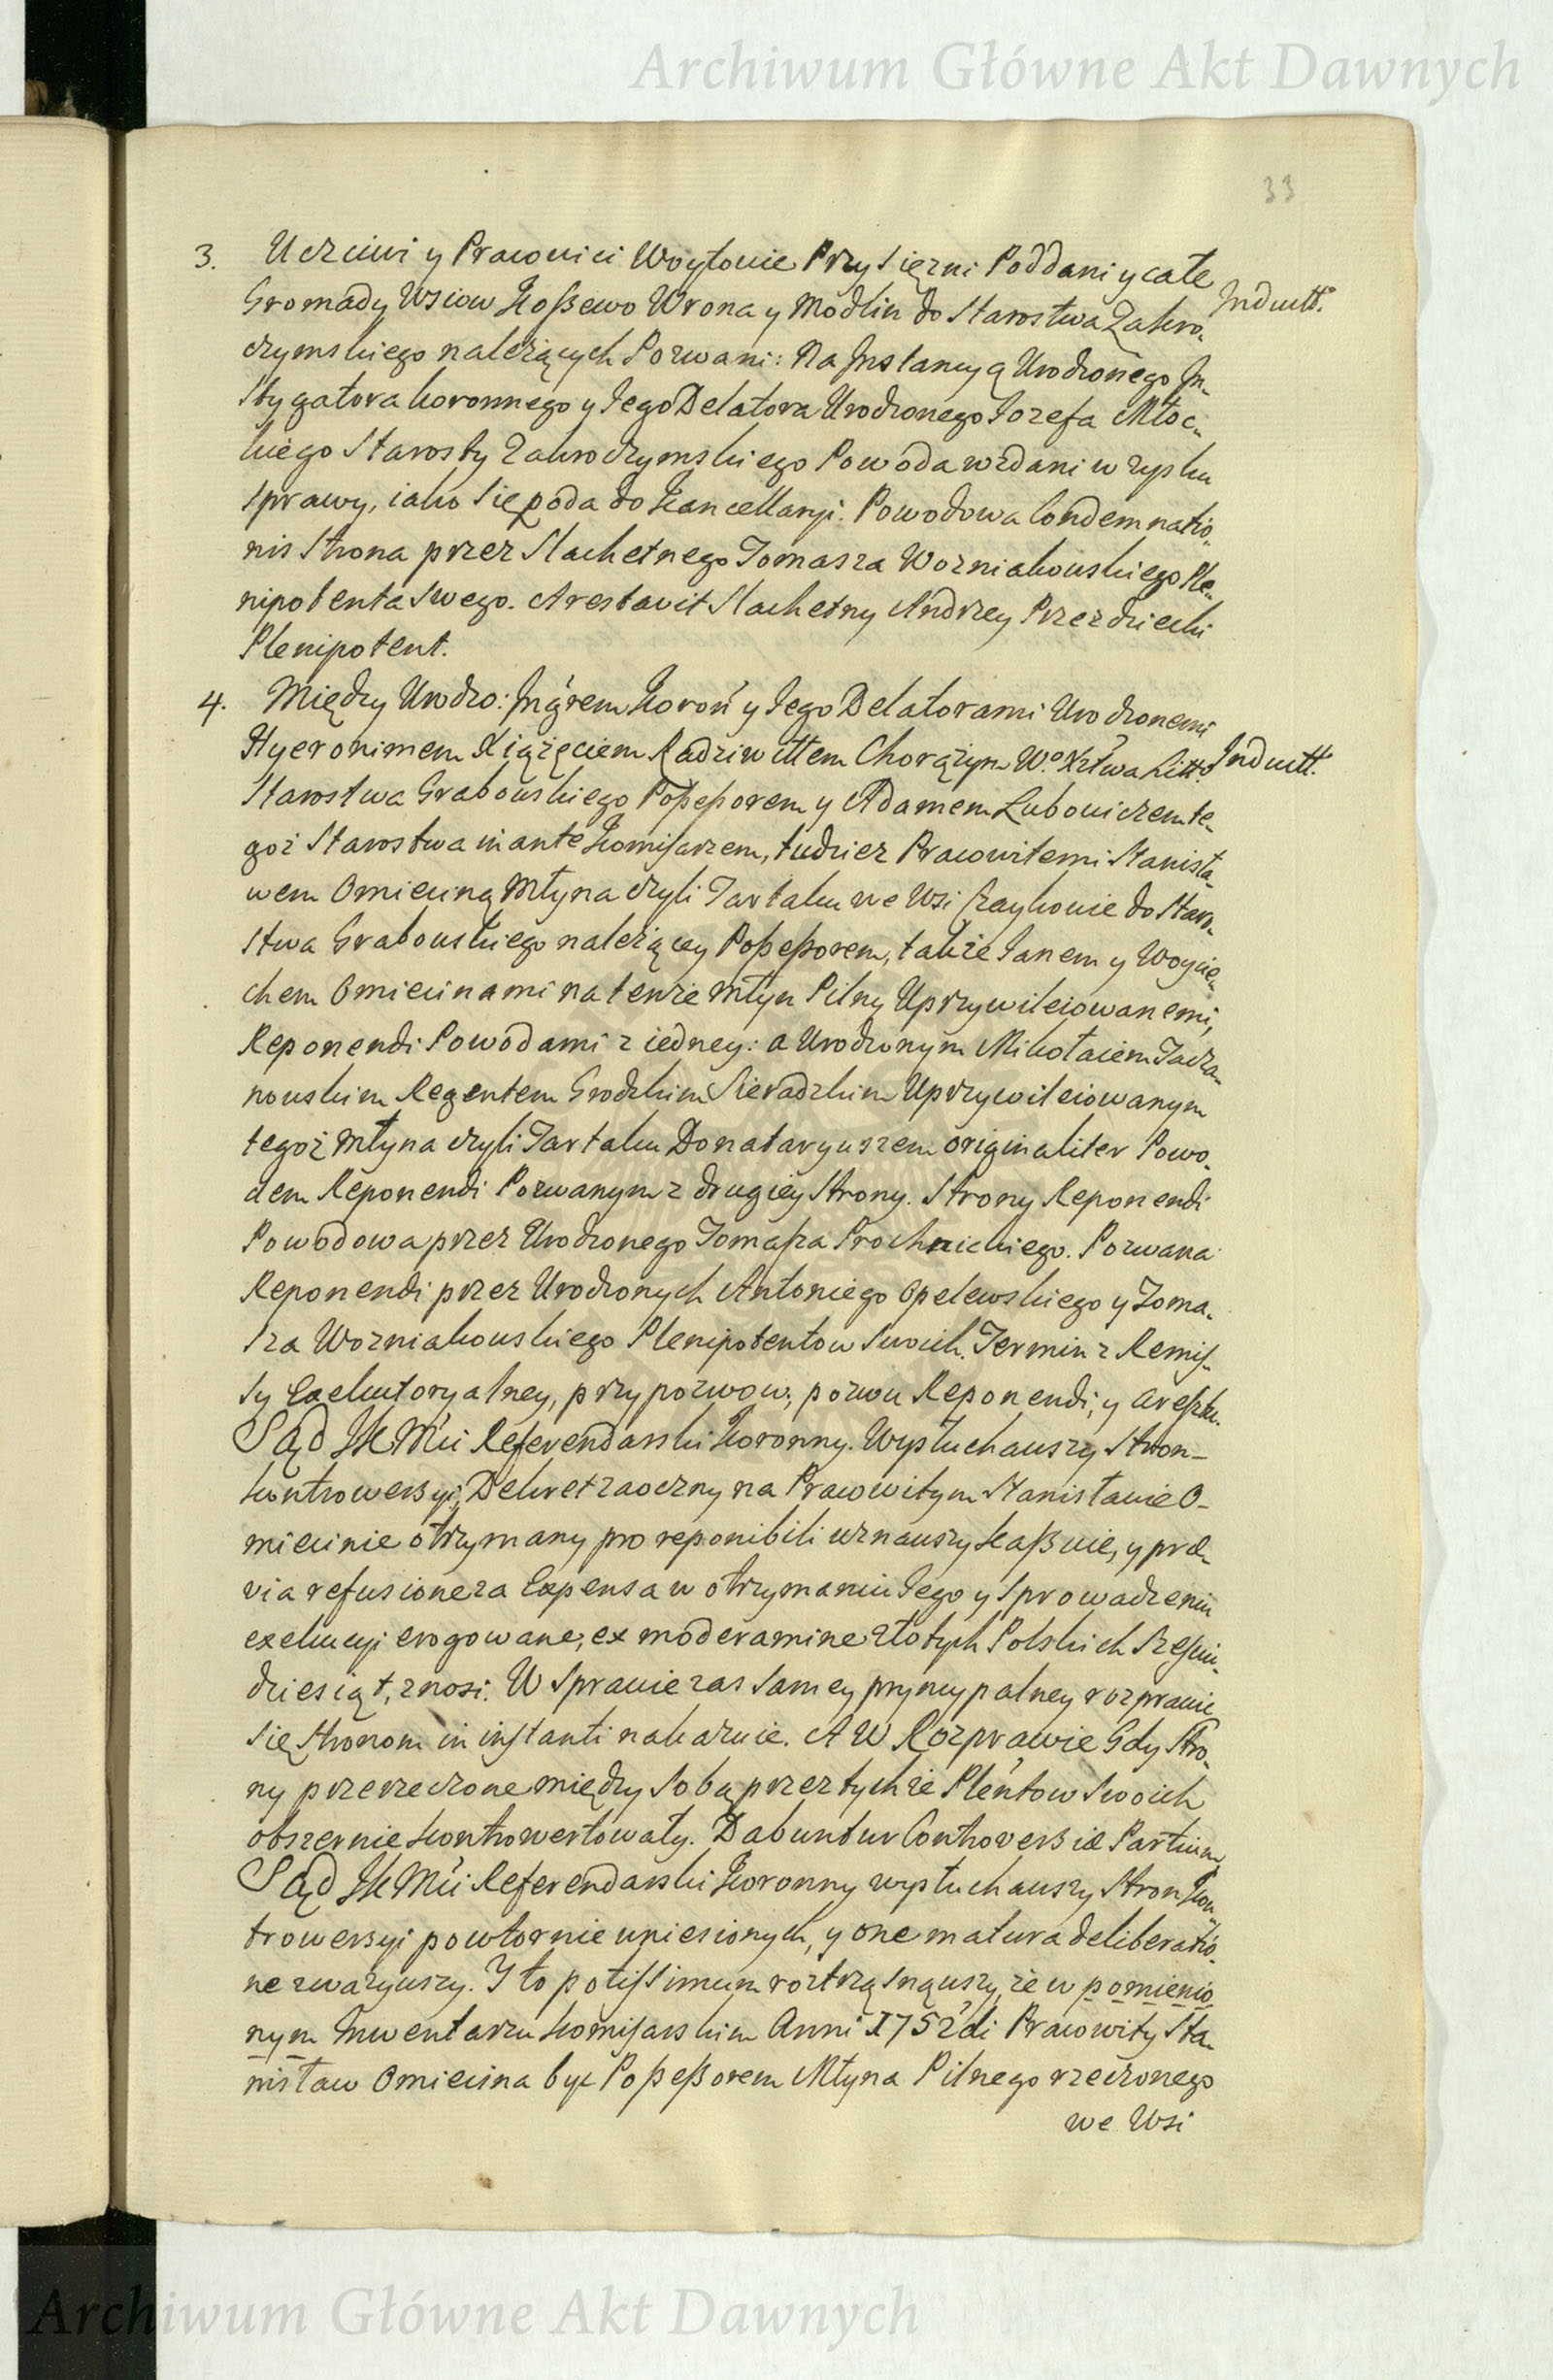 Archiwum Główne Akt Dawnych
33
3. Uczciwi y Pracowici Woytowie Przysięzni Poddani y całe
Gromady Wsiow Koßewo Wrona y Modlin do Starostwa Zakro-
czymskiego należących Pozwani: Na Instancyą Urodzonego In-
Indukt.
stygatora koronnego y Jego Delatora Urodzonego Jozefa Młoc-
kiego Starosty Zakroczymskiego Powoda wzdani w zysku
sprawy, iako się poda do Kancellaryi. Powodowa Condemnatio-
nis Strona przez Slachetnego Tomasza Wozniakowskiego Ple-
nipotenta Swego. Arestavit Slachetny Andrzey Przezdziecki
Plenipotent.
4. Między Urodzo: Ingrem Koron y Jego Delatorami Urodzonemi
Hyeronimem Xiążęciem Radziwiłłem Chorążym W.º Xztwa Litt:º
Indukt.
Starostwa Grabowskiego Poßeßorem y Adamem Lubowiczem te-
goż Starostwa inante Komisarzem, tudziez Pracowitemi Stanisła-
wem Omieciną Młyna czyli Tartaku we Wsi Czaykowie do Staro-
stwa Grabowskiego należącey Poßeßorem, także Janem y Woycie-
chem Omiecinami na tenże Młyn Pilny Uprzywileiowanemi,
Reponendi Powodami z iedney: a Urodzonym Mikołaiem Tacza-
nowskim Regentem Grodzkim Sieradzkim Uprzywileiowanym
tegoż Młyna czyli Tartaku Donataryuszem originaliter Powo-
dem Reponendi Pozwanym z drugiey Strony. Strony Reponendi
Powodowa przez Urodzonego Tomaſza Prochnickiego. Pozwana
Reponendi przez Urodzonych Antoniego Opelewskiego y Toma-
sza Wozniakowskiego Plenipotentow Swoich. Termin z Remis-
sy Exekutoryalney, przypozwow, pozwu Reponendi, y aresztu.
Sąd JKMci Referendarski Koronny. Wysłuchauszy Stron-
kontrowersyi, Dekret zaoczny na Pracowitym Stanisławie O-
miecinie otrzymany pro reponibili uznauszy kaßuie, y præ-
via refusione za Expensa w otrzymaniu Jego y sprowadzeniu
exekucyi erogowane, ex moderamine złotych Polskich Szeſci-
dziesiąt, znosi. W Sprawie zas samey pryncypalney rozprawić
się Stronom in instanti nakazuie. A W Rozprawie Gdy Stro-
ny przerzeczone między sobą przez tychże Plentow Swoich
obszernie kontrowertowały. Dabuntur Controversiæ Partium,
Sąd JKMci Referendarski Koronny wysłuchauszy Stron Kon-
trowersyi powtornie wniesionych, y one matura deliberatio-
ne zważywszy. I to potissimum roztrząsnąwszy, że w pomienio-
nym Inwentarzu komisarskim Anni 1752di Pracowity Sta-
nisław Omiecina być Poßeßorem Młyna Pilnego rzeczonego
we Wsi
Archiwum Główne Akt Dawnych